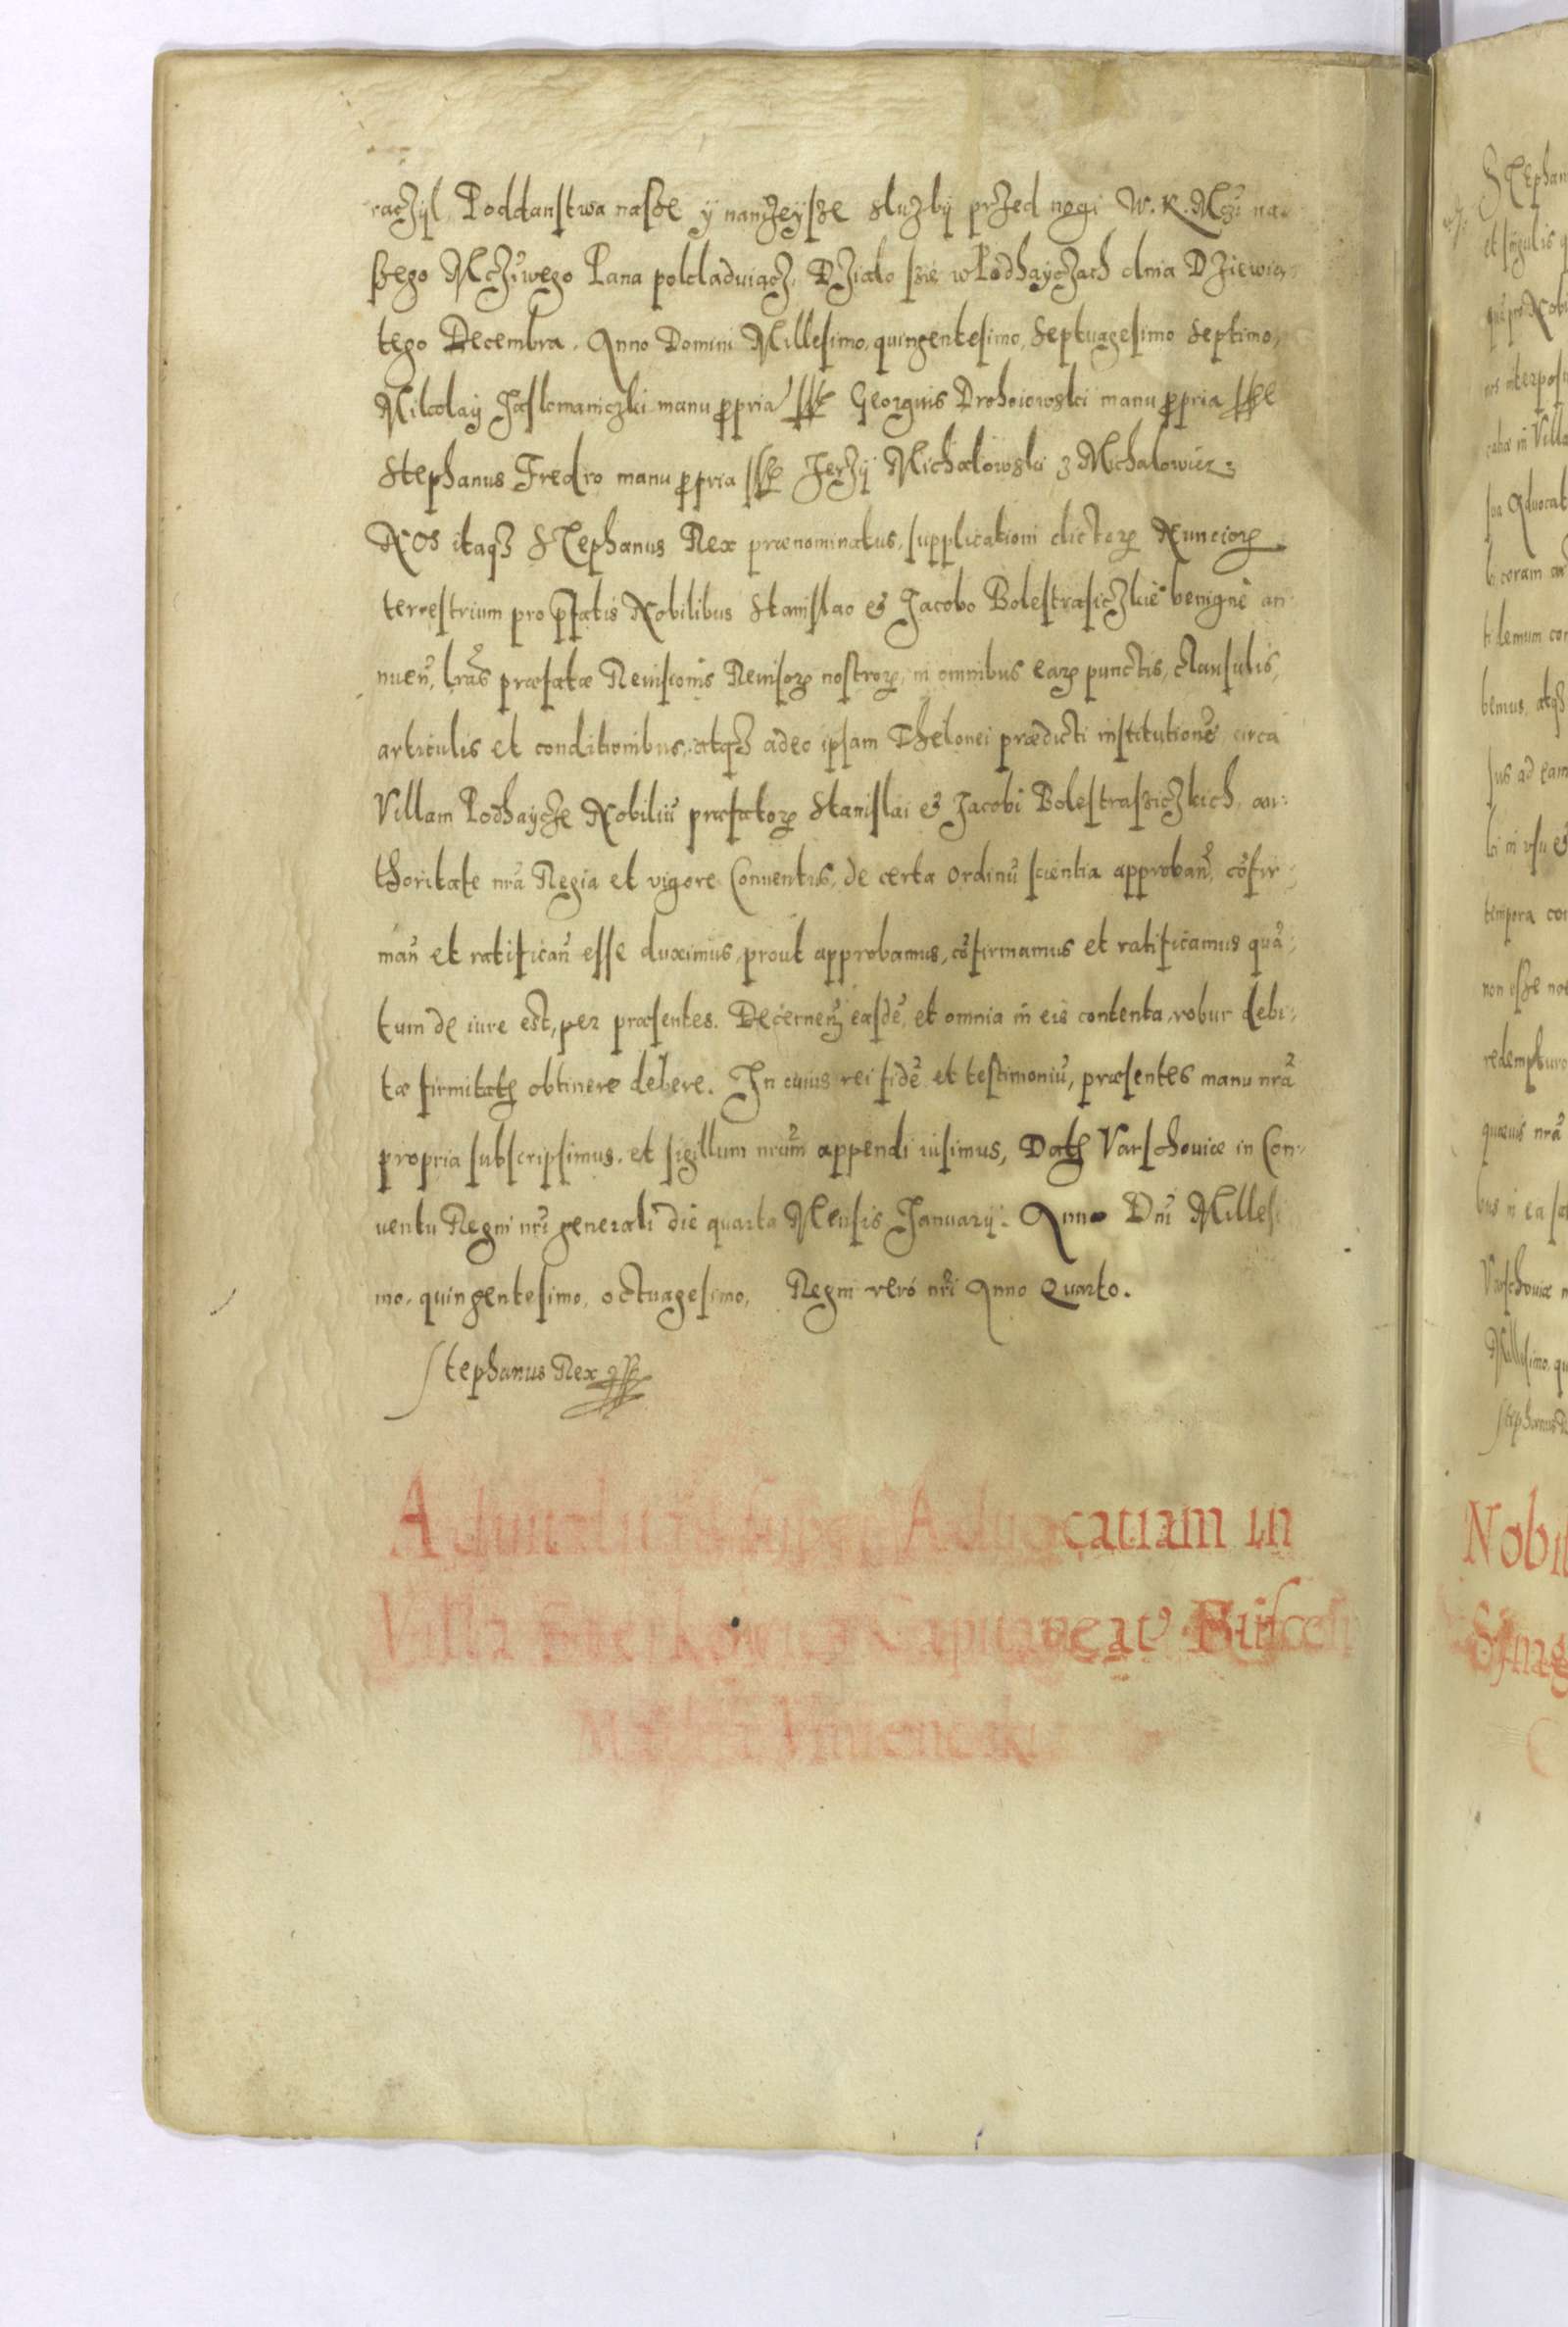 raczÿl, Poddanstwa nasze ÿ nanizeysze sluzbÿ przed nogi W. K. Mczi na
szego Mcziwego Pana pokladviącz, Działo szie w Podhayczach dnia Dziewią
tego Decembra. Anno Domini Millesimo, quingentesimo, Septuagesimo Septimo,
Mikolaÿ Jaslomaniczki manu ppria sst Georgius Drohoiowski manu ppria sst
Stephanus Fredro manu ppria sst Jerzÿ Michałowski z Michalowicz
NOS itaqз Stephanus Rex prænominatus, supplicationi dictoꝝ Nuncioꝝ
terrestrium pro pfatis Nobilibus Stanislao et Jacobo Bolestrasiczkie benignè an
nuen, lras præfatæ Reuisionis Reuisoꝝ nostroꝝ, in omnibus eaꝝ punctis, clausulis,
articulis et conditionibus, atqз adeo ipsam Thelonei prædicti institutionē circa
Villam Podhaycze Nobiliū præfatoꝝ Stanislai et Jacobi Bolestrasziczkich, au:
thoritate nrā Regia et vigore Conuentus, de certa ordinū scientia approban, cōfir:
man et ratifican esse duximus, prout approbamus, cōfirmamus et ratificamus quā:
tum de iure est, per præsentes. Decernen easdē, et omnia in eis contenta, robur debi:
tæ firmitatꝭ obtinere debere. In cuius rei fidē et testimoniū, præsentes manu nrā
propria subscripsimus, et sigillum nrūm appendi iusimus, Datꝭ Varschouiæ in Con:
uentu Regni nrī generali die quarta Mensis Januarÿ. Anno Dnī Millesi
mo, quingentesimo, octuagesimo, Regni verò nrī Anno Quarto.
Stephanus Rex sst
Aduocatiam in
Villa Capitaneatꝰ Buscen
Stephan
et singulis q
Nobi
nos interposu
in Villa
sua Aduocat
coram
demum con
bemus, atqз
ius ad eam
in vsu et
tempora con
non esse
redempturo
quæuis nrā
bus in ea
Varschouiæ
Millesimo, qu
Stephanus R
Nobil
Synag